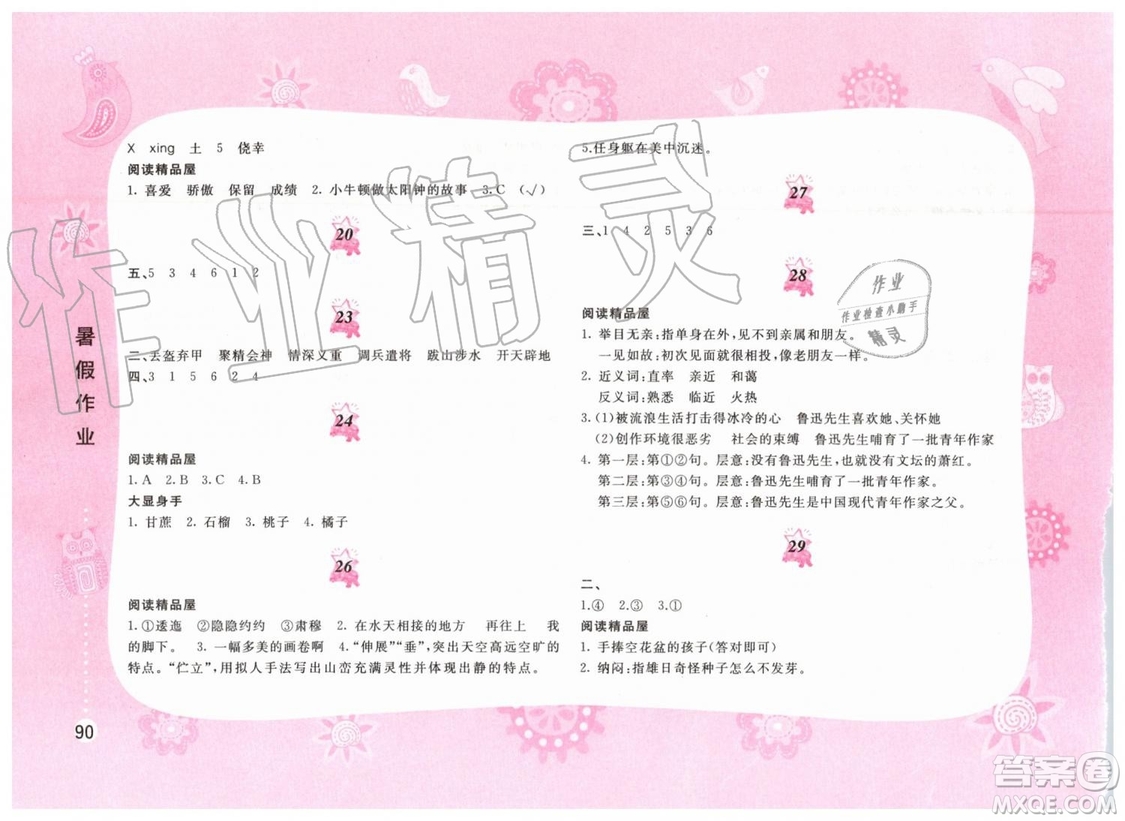 X xing 土 5 侥幸
阅读精品屋
1. 喜爱 骄傲 保留 成绩 2. 小牛顿做太阳钟的故事 3.C (√)
20
五、5 3 4 6 1 2
23
二、丢盔弃甲 聚精会神 情深义重 调兵遣将 跋山涉水 开天辟地
四、3 1 5 6 2 4
24
阅读精品屋
1. A 2. B 3. C 4. B
大显身手
1. 甘蔗 2. 石榴 3. 桃子 4. 橘子
26
阅读精品屋
1.①逶迤 ②隐隐约约 ③肃穆 2. 在水天相接的地方 再往上 我
的脚下。 3. 一幅多美的画卷啊 4.“伸展”“垂”,突出天空高远空旷的
特点。“伫立”,用拟人手法写出山峦充满灵性并体现出静的特点。
暑假作业
90
5.任身躯在美中沉迷。
27
三、1 4 2 5 3 6
28
阅读精品屋
1. 举目无亲:指单身在外,见不到亲属和朋友。
一见如故:初次见面一见投机,像老朋友一样。
2. 近义词:直率 亲近 和蔼
反义词:熟悉 临近 火热
3.(1)被流浪生活打击得冰冷的心 鲁迅先生喜欢她、关怀她
(2)创作环境很恶劣 社会的束缚 鲁迅先生哺育了一批青年作家
4. 第一层:第①②句。层意:没有鲁迅先生,就没有文坛的萧红。
第二层:第③④句。层意:鲁迅先生哺育了一批青年作家。
第三层:第⑤⑥句。层意:鲁迅先生是中国现代青年作家之父。
29
二、
1.④ 2.③ 3.①
阅读精品屋
1. 手捧空花盆的孩子(答对即可)
2. 纳闷:指雄日奇怪种子怎么不发芽。
作业精灵
作业
作业检查小助手
精灵
答案卷
MXQE.COM